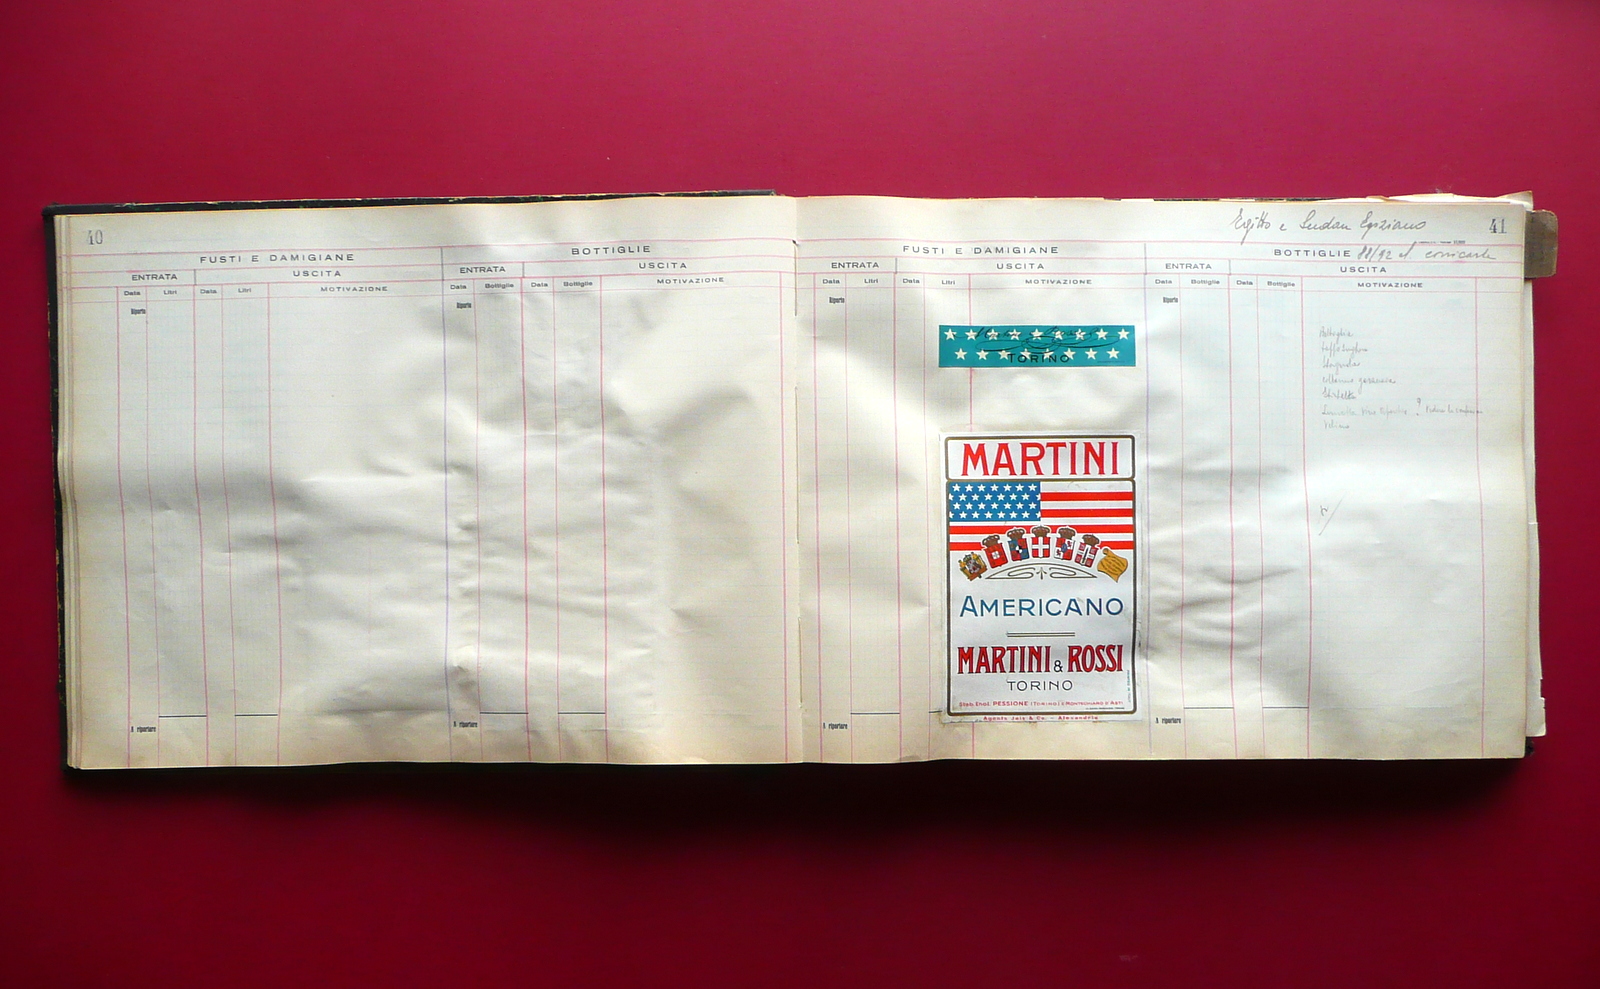 40
FUSTI E DAMIGIANE
BOTTIGLIE
ENTRATA
USCITA
ENTRATA
USCITA
Data Litri Data Litri MOTIVAZIONE
Data Bottiglie Data Bottiglie MOTIVAZIONE
Riporto
Riporto
A riportare
A riportare
Egitto e Sudan Egiziano
41
FUSTI E DAMIGIANE
BOTTIGLIE
ENTRATA
USCITA
ENTRATA
USCITA
Data Litri Data Litri MOTIVAZIONE
Data Bottiglie Data Bottiglie MOTIVAZIONE
Riporto
Riporto
TORINO
Bottiglia
MARTINI
AMERICANO
MARTINI & ROSSI
TORINO
Stab. Enol. PESSIONE (TORINO) e MONTECHIARO D'ASTI
Agents Jeis & Co. - Alexandrie
A riportare
A riportare